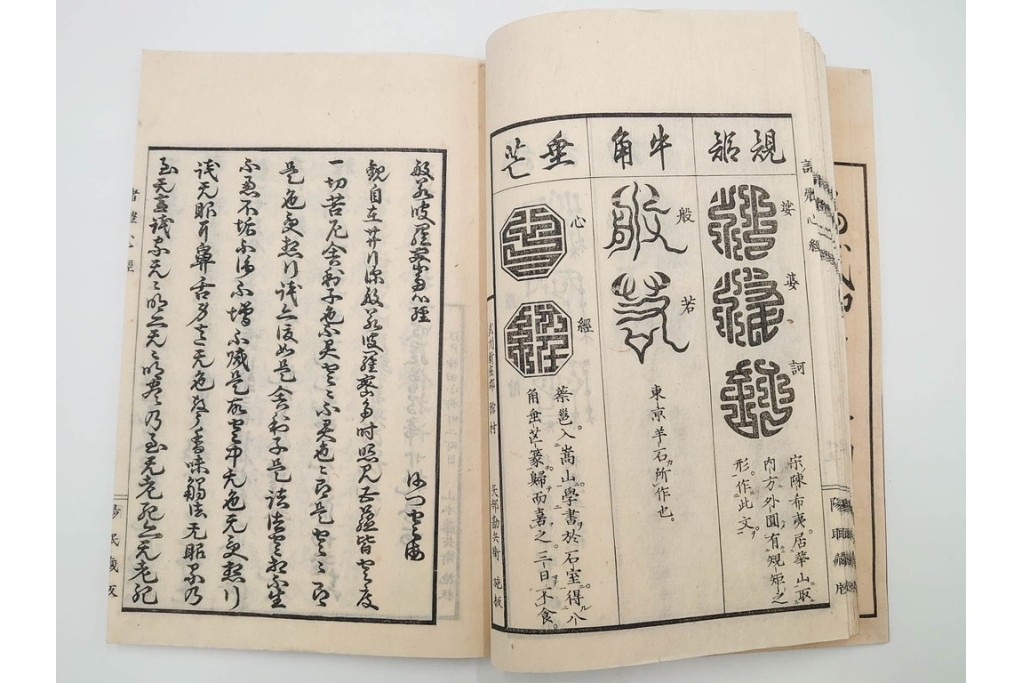 規矩
娑
婆
訶
宋陳希夷居華山取
内方外圓有規矩之
形作此文
牛角
般
若
東京羊石所作也。
垂芒
心
經
蔡邕入嵩山學書於石室得八
角垂芒篆歸而喜之三日不食。
般若波羅蜜多心經
沙門空海
觀自在菩薩行深般若波羅蜜多時照見五蘊皆空度
一切苦厄舍利子色不異空空不異色色即是空空即
是色受想行識亦復如是舍利子是諸法空相不生
不滅不垢不淨不增不減是故空中无色无受想行
識无眼耳鼻舌身意无色聲香味觸法无眼界乃
至无意識界无无明亦无无明盡乃至无老死亦无老死